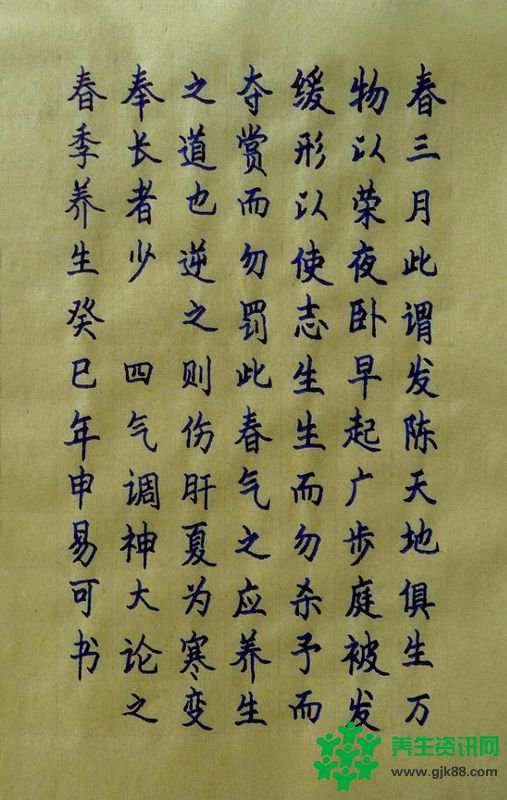 春三月此谓发陈天地俱生万
物以荣夜卧早起广步庭被发
缓形以使志生生而勿杀予而
夺赏而勿罚此春气之应养生
之道也逆之则伤肝夏为寒变
奉长者少 四气调神大论之
春季养生癸巳年申易可书
养生资讯网
www.gjk88.com